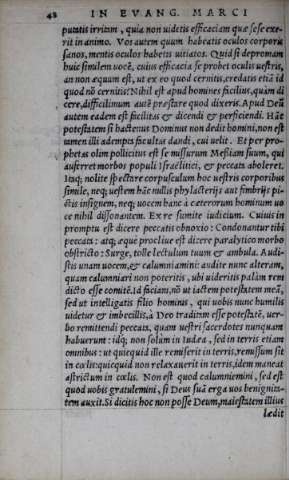 42 IN EVANG. MARCI
putatis irritum, quia non uidetis efficaciam quæ sese exe-
rit in animo. Vos autem quum habeatis oculos corporis
sanos, mentis oculos habetis uitiatos. Quid si depromam
huic similem uocē, cuius efficacia se probet oculis uestris,
an non æquum est, ut ex eo quod cernitis, credatis etiā id
quod nō cernitis? Nihil est apud homines facilius, quàm di
cere, difficilimum autē præstare quod dixeris. Apud Deū
autem eadem est facilitas & dicendi & perficiendi. Hāc
potestatem si hactenus Dominus non dedit homini, non est
tamen illi adempta facultas dandi, cui uelit. Et per pro-
phetas olim pollicitus est se missurum Messiam suum, qui
auferret morbos populi Israëlitici, & peccata aboleret.
Itaq; nolite spectare corpusculum hoc uestris corporibus
simile, neq; uestem hāc nullis phylacterijs aut fimbrijs pi-
ctis insignem, neq; uocem hanc à cæterorum hominum uo
ce nihil dissonantem. Ex re sumite iudicium. Cuiuis in
promptu est dicere peccatis obnoxio: Condonantur tibi
peccata: atq; æque procliue est dicere paralytico morbo
obstricto: Surge, tolle lectulum tuum & ambula. Audi-
stis unam uocem, & calumniamini: audite nunc alteram,
quam calumniari non poteritis, ubi uideritis palàm rem
dicto esse comitē. Id faciam, nō ut iactem potestatem meā,
sed ut intelligatis filio hominis, qui uobis nunc humilis
uidetur & imbecillis, à Deo traditam esse potestatē, uer-
bo remittendi peccata, quam uestri sacerdotes nunquam
habuerunt: idq; non solùm in Iudæa, sed in terris etiam
omnibus: ut quicquid ille remiserit in terris, remissum sit
in cœlis: quicquid non relaxauerit in terris, idem maneat
astrictum in cœlis. Non est quod calumniemini, sed est
quod uobis gratulemini, si Deus suā erga uos benignita-
tem auxit. Si dicitis hoc non posse Deum, maiestatem illius
lædit